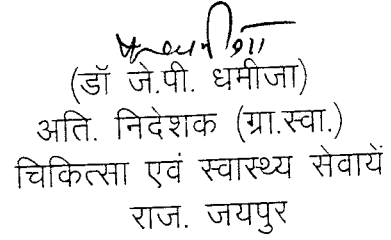 (डॉ जे.पी. धमीजा)
अति. निदेशक (ग्रा.स्वा.)
चिकित्सा एवं स्वास्थ्य सेवायें
राज. जयपुर